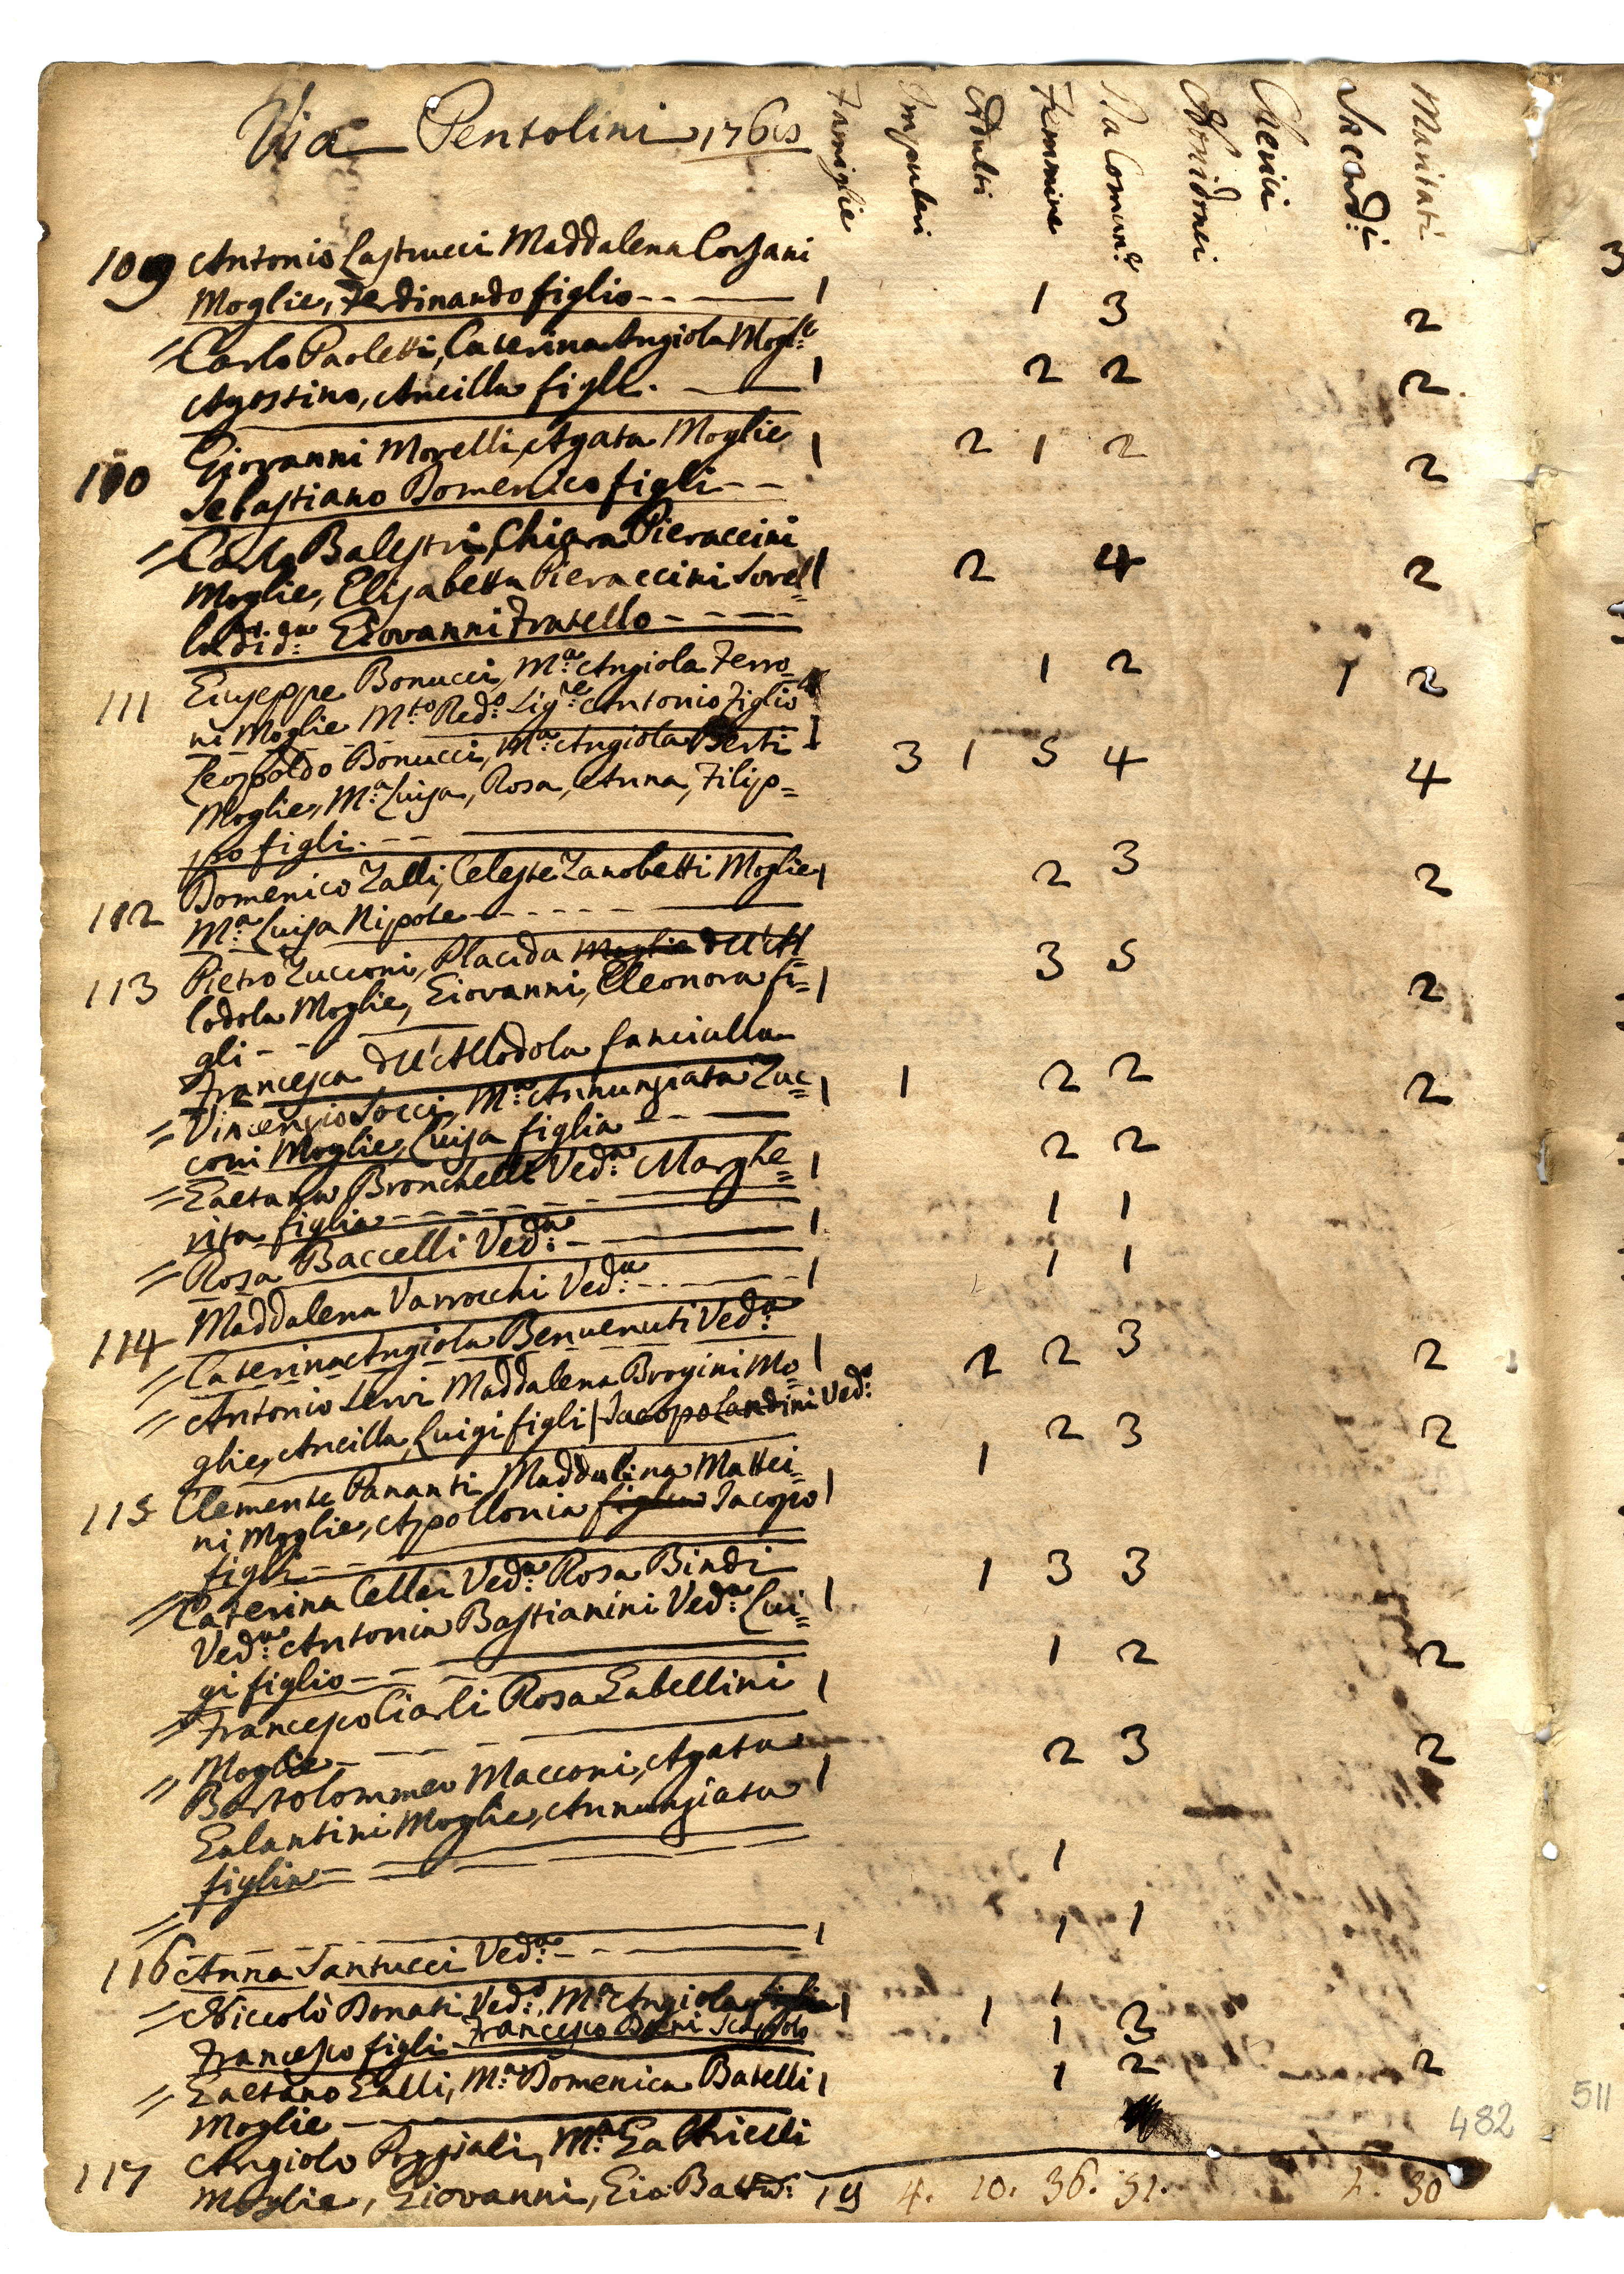 Via Pentolini 1766
Famiglie Impuberi Adulti Femmine Da Comun:e Non idonei Cherici Sacerd:ti Maritati
109 Antonio Lastrucci Maddalena Corsani
Moglie, Ferdinando figlio-- — 1 1 3 2
= Carlo Paoletti, Caterina Angiola Mogl:e
Agostino, Ancilla figli. — 1 2 2 2
110 Giovanni Morelli, Agata Moglie 1 2 1 2 2
Sebastiano Domenico figli--
= Carlo Balestri, Chiara Pieraccini
Moglie, Elisabetta Pieraccini Sorel= 1 2 4 2
la di d:a Giovanni Fratello - - - -
111 Giuseppe Bonucci, M:a Angiola Ferro= 1 2 1 2
ni Moglie M:to Red:o Sig:re Antonio Figlio
Leopoldo Bonucci, M:a Angiola Berti 1 3 1 5 4 4
Moglie, M:a Luisa, Rosa, Anna, Filip=
po figli. --
112 Domenico Zalli, Celeste Zanobetti Moglie 1 2 3 2
M:a Luisa Nipote - - - - -
113 Pietro Zucconi, Placida Moglie dell'Al= 3 5
lodola Moglie, Giovanni, Eleonora fi= 1 2
gli - -
Francesca dell'Allodola fanciulla
= Vincenzio Socci, M:a Annunziata Zuc= 1 1 2 2 2
coni Moglie, Luisa figlia - - —
= Gaetana Bronchelli Ved:a Marghe= 1 2 2
rita figlia - - - - - -
= Rosa Baccelli Ved:a - — 1 1 1
114 Maddalena Varrocchi Ved:a - - — 1 1 1
= Caterina Angiola Benvenuti Ved:a
= Antonio Servi Maddalena Brogini Mo= 1 2 2 3 2
glie, Ancilla, Luigi figli / Jacopo Landini Ved:o
115 Clemente Pananti, Maddalena Mattei= 1 2 3 2
ni Moglie, Apollonia figlia Jacopo 1
figli - -
= Caterina Cellai Ved:a Rosa Bindi 1 3 3
Ved:a Antonia Bastianini Ved:a Lui= 1
gi figlio - -
= Francesco Ciarli Rosa Gabellini 1 1 2 2
Moglie -
= Bartolommeo Macconi, Agata 2 3 2
Galantini Moglie, Annunziata 1
figlia - —
= 1
116 Anna Santucci Ved:a - - — 1 1 1
= Niccolò Donati Ved:o, M:a Angiola figlia 1 1 1 3
Francesco figli Francesco Scapolo 1
= Gaetano Galli, M:a Domenica Batelli 1 1 2 2
Moglie —
117 Angiolo Poggiali, M:a Gattricelli
Moglie, Giovanni, Gio: Batt:a 19 4. 10. 36. 51. 1. 30
482
511